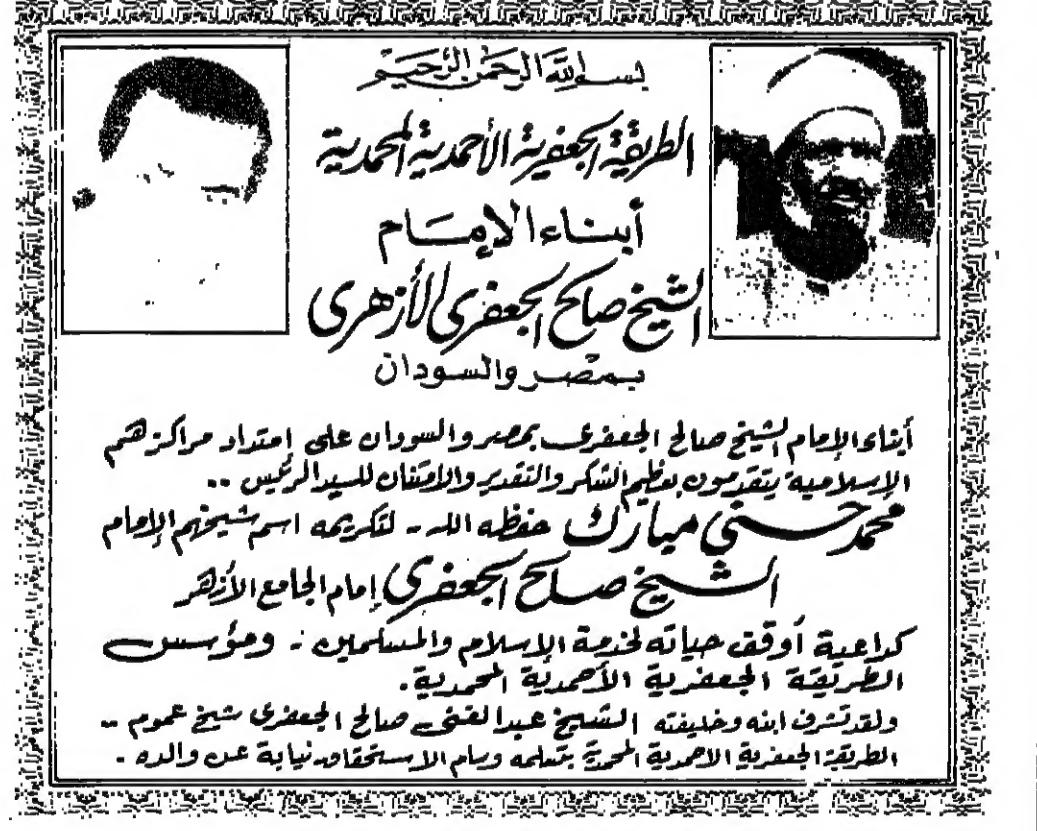 بسم الله الرحمن الرحيم
الطريقة الجعفرية الأحمدية المحمدية
أبناء الإمام
الشيخ صالح الجعفرى الأزهرى
بمصر والسودان
أبناء الإمام الشيخ صالح الجعفرى بمصر والسودان على امتداد مراكزهم
الإسلامية يتقدمون بعظيم الشكر والتقدير والامتنان للسيد الرئيس ..
محمد حسني مبارك حفظه الله - لتكريمه اسم شيخهم الإمام
الشيخ صالح الجعفرى إمام الجامع الأزهر
كداعية أوقف حياته لخدمة الإسلام والمسلمين - ومؤسس
الطريقة الجعفرية الأحمدية المحمدية .
ولقد تشرف ابنه وخليفته الشيخ عبد الغنى صالح الجعفرى شيخ عموم ..
الطريقة الجعفرية الاحمدية المحمدية بتسلمه وسام الاستحقاق نيابة عن والده .